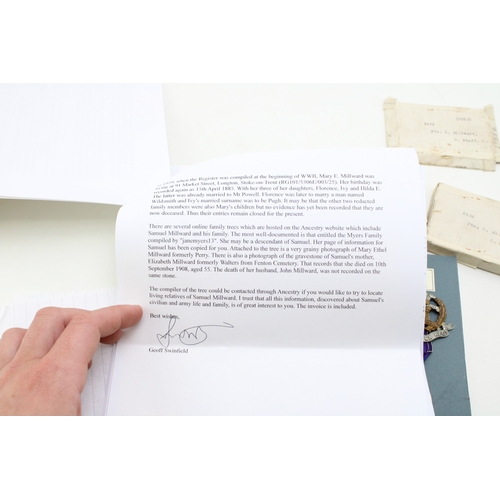 when the Register was compiled at the beginning of WWII, Mary E. Millward was
living at 91 Market Street, Longton, Stoke-on-Trent (RG101/5306E/003/23). Her birthday was
recorded again as 15th April 1882. With her three of her daughters, Florence, Ivy and Hilda E.
The latter was already married to Mr Powell. Florence was later to marry a man named
Wildsmith and Ivy's married surname was to be Pugh. It may be that the other two redacted
family members were also Mary's children but no evidence has yet been recorded that they are
now deceased. Thus their entries remain closed for the present.
There are several online family trees which are hosted on the Ancestry website which include
Samuel Millward and his family. The most well-documented is that entitled the Myers Family
compiled by "janemyers13". She may be a descendant of Samuel. Her page of information for
Samuel has been copied for you. Attached to the tree is a very grainy photograph of Mary Ethel
Millward formerly Perry. There is also a photograph of the gravestone of Samuel's mother,
Elizabeth Millward formerly Walters from Fenton Cemetery. That records that she died on 10th
September 1908, aged 55. The death of her husband, John Millward, was not recorded on the
same stone.
The compiler of the tree could be contacted through Ancestry if you would like to try to locate
living relatives of Samuel Millward. I trust that all this information, discovered about Samuel's
civilian and army life and family, is of great interest to you. The invoice is included.
Best wishes
Geoff Swinfield